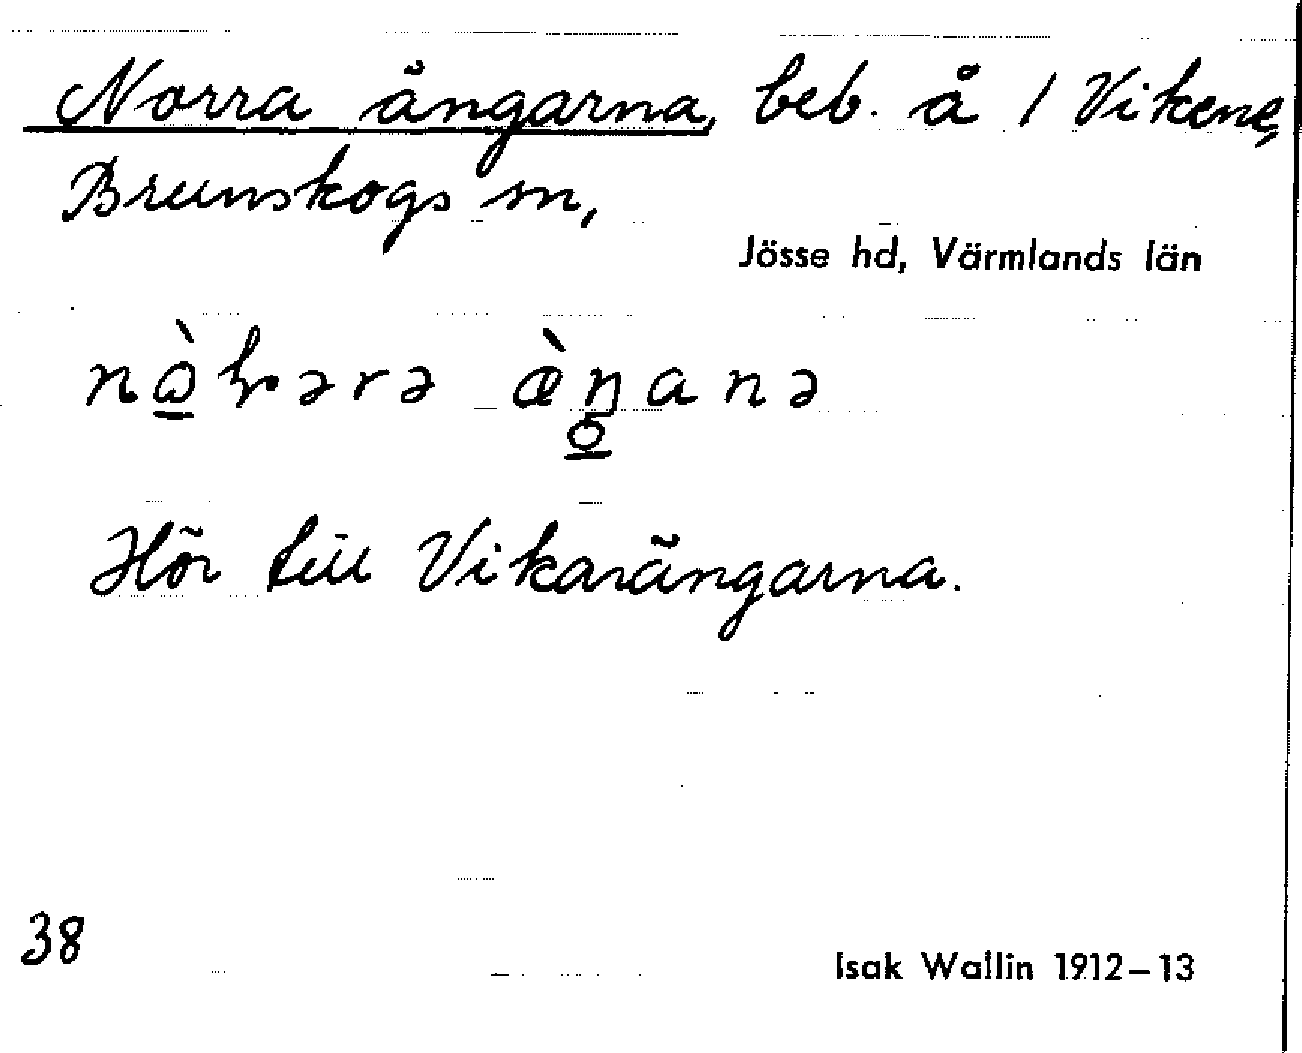 Norra ängarna, beb. å 1 Vikene,
Brunskogs sn,
Jösse hd, Värmlands län
æ̀ŋanə
Hör till Vikarängarna.
38
Isak Wallin 1912–13